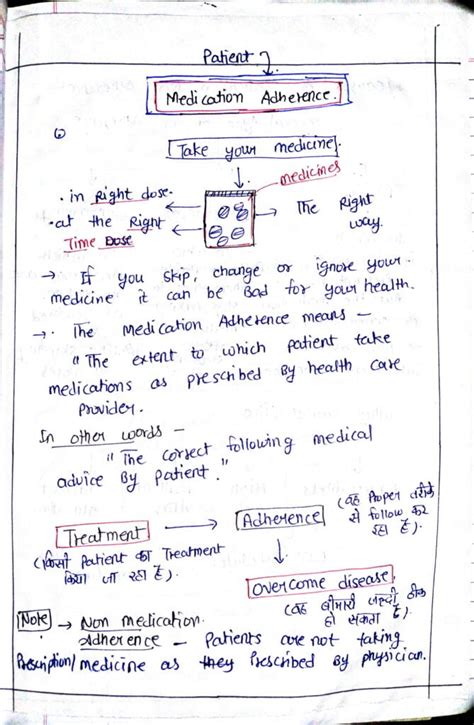 Patient
Medication Adherence.
Take your medicine.
medicines
. in Right dose.
. at the Right
Time Dose
The Right
way.
→ If you skip, change or ignore your
medicine it can be Bad for your health.
→ . The Medication Adherence means –
"The extent to which patient take
medications as prescribed By health care
Provider.
In other words –
"The correct following medical
advice By Patient."
Treatment → Adherence (वह Proper तरीके
से follow कर
रहा है).
(किसी Patient का Treatment
किया जा रहा है).
Overcome disease.
(वह बीमारी जल्दी ठीक
हो सकता है).
Note → Non medication.
Adherence – Patients are not taking
Prescription/medicine as they Prescribed By physician.